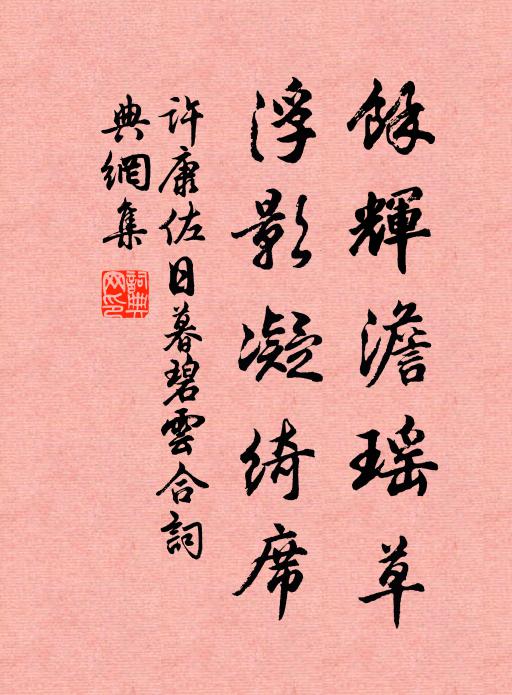 餘輝澹瑶草
浮影凝綺席
許康佐日暮碧雲合詞
典網集
詞典網印